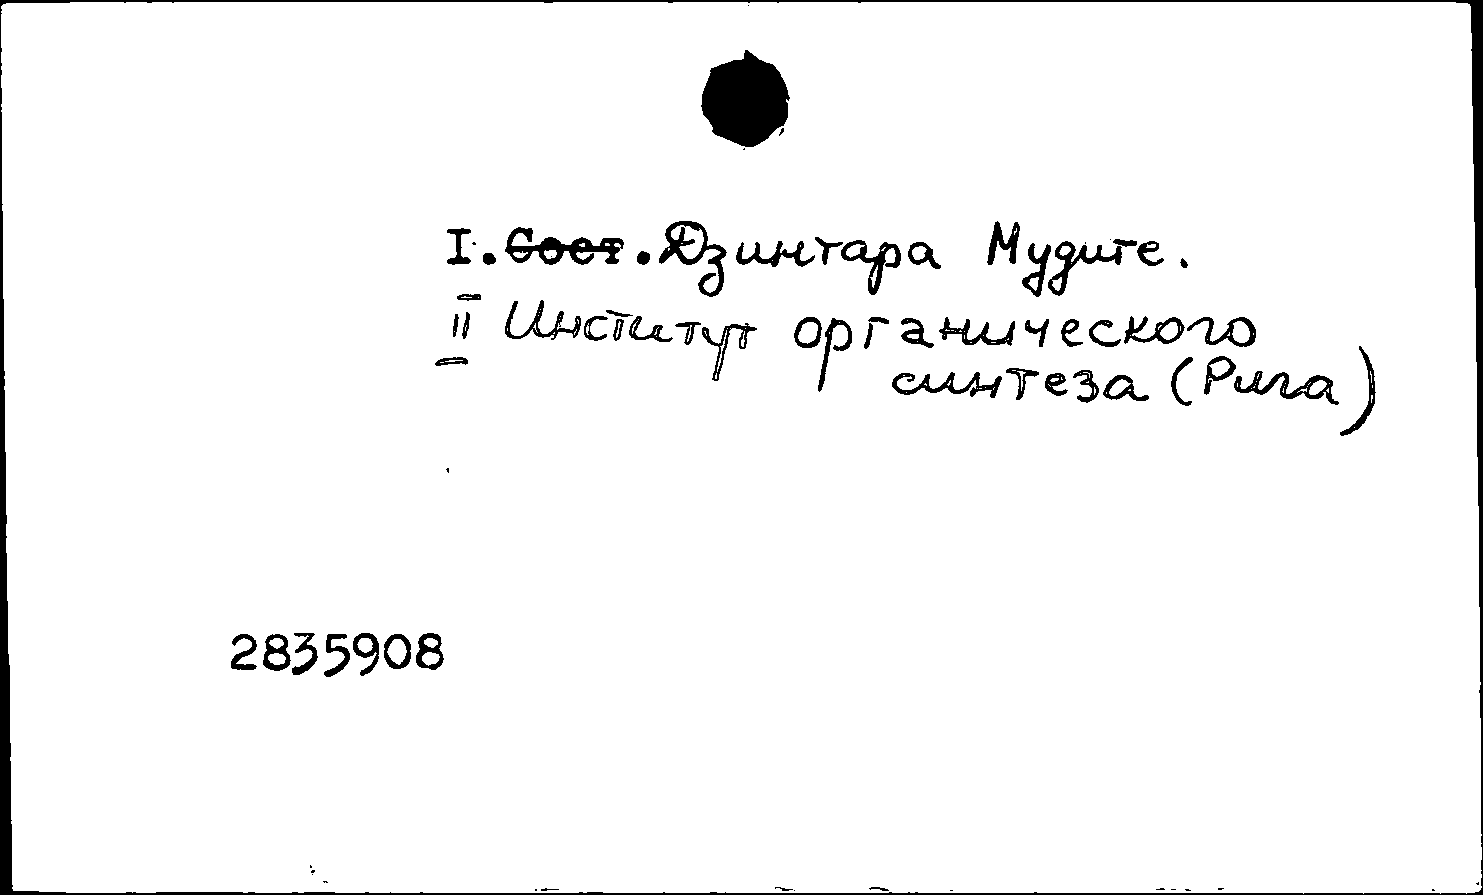 I. Сост. Дзинтара Мудите.
II Институт органического
синтеза (Рига)
2835908